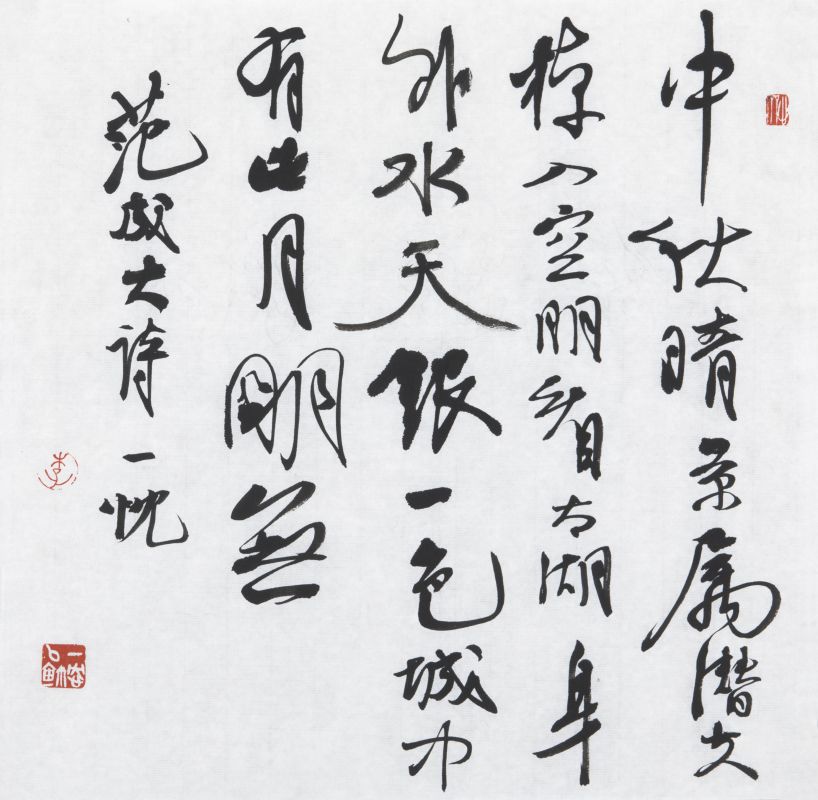 中秋晴景属潜夫
棹入空明看太湖身
外水天银一色城中
有此月明無
范成大诗一忱
李